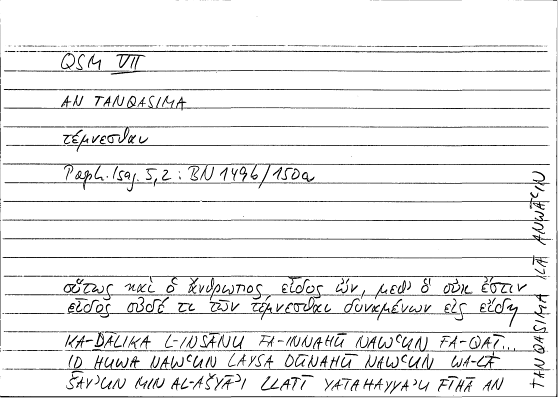 QSM VII
AN TANQASIMA
τέμνεσθαι
Porph. Isag. 5,2 : BN 1496/150a
οὕτως καὶ ὁ ἄνθρωπος εἶδος ὤν, μεθ' ὃ οὐκ ἔστιν
εἶδος οὐδέ τι τῶν τέμνεσθαι δυναμένων εἰς εἴδη
KA-ḎĀLIKA L-INSĀNU FA-INNAHŪ NAWʿUN FA-QAṬ...
IḎ HUWA NAWʿUN LAYSA DŪNAHŪ NAWʿUN WA-LĀ
ŠAYʾUN MIN AL-AŠYĀʾI LLATĪ YATAHAYYAʾU FĪHĀ AN
TANQASIMA ILĀ ANWĀʿIN